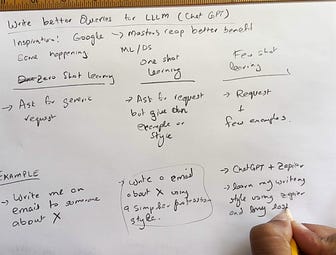 Write better Queries for LLLM (ChatGPT)
Inspiration: Google → Masters reap better benefit
Same happening ML/DS
Zero Shot learning
→ Ask for generic
request
One shot
learning
→ Ask for request
but give
example or
style
Few shot
learning
→ Request
+
few examples.
EXAMPLE
→ Write me an
email to someone
about X
→ Write a email
about X using
a simple
style.
→ ChatGPT + Zapier
→ learn my writing
style using zapier
and